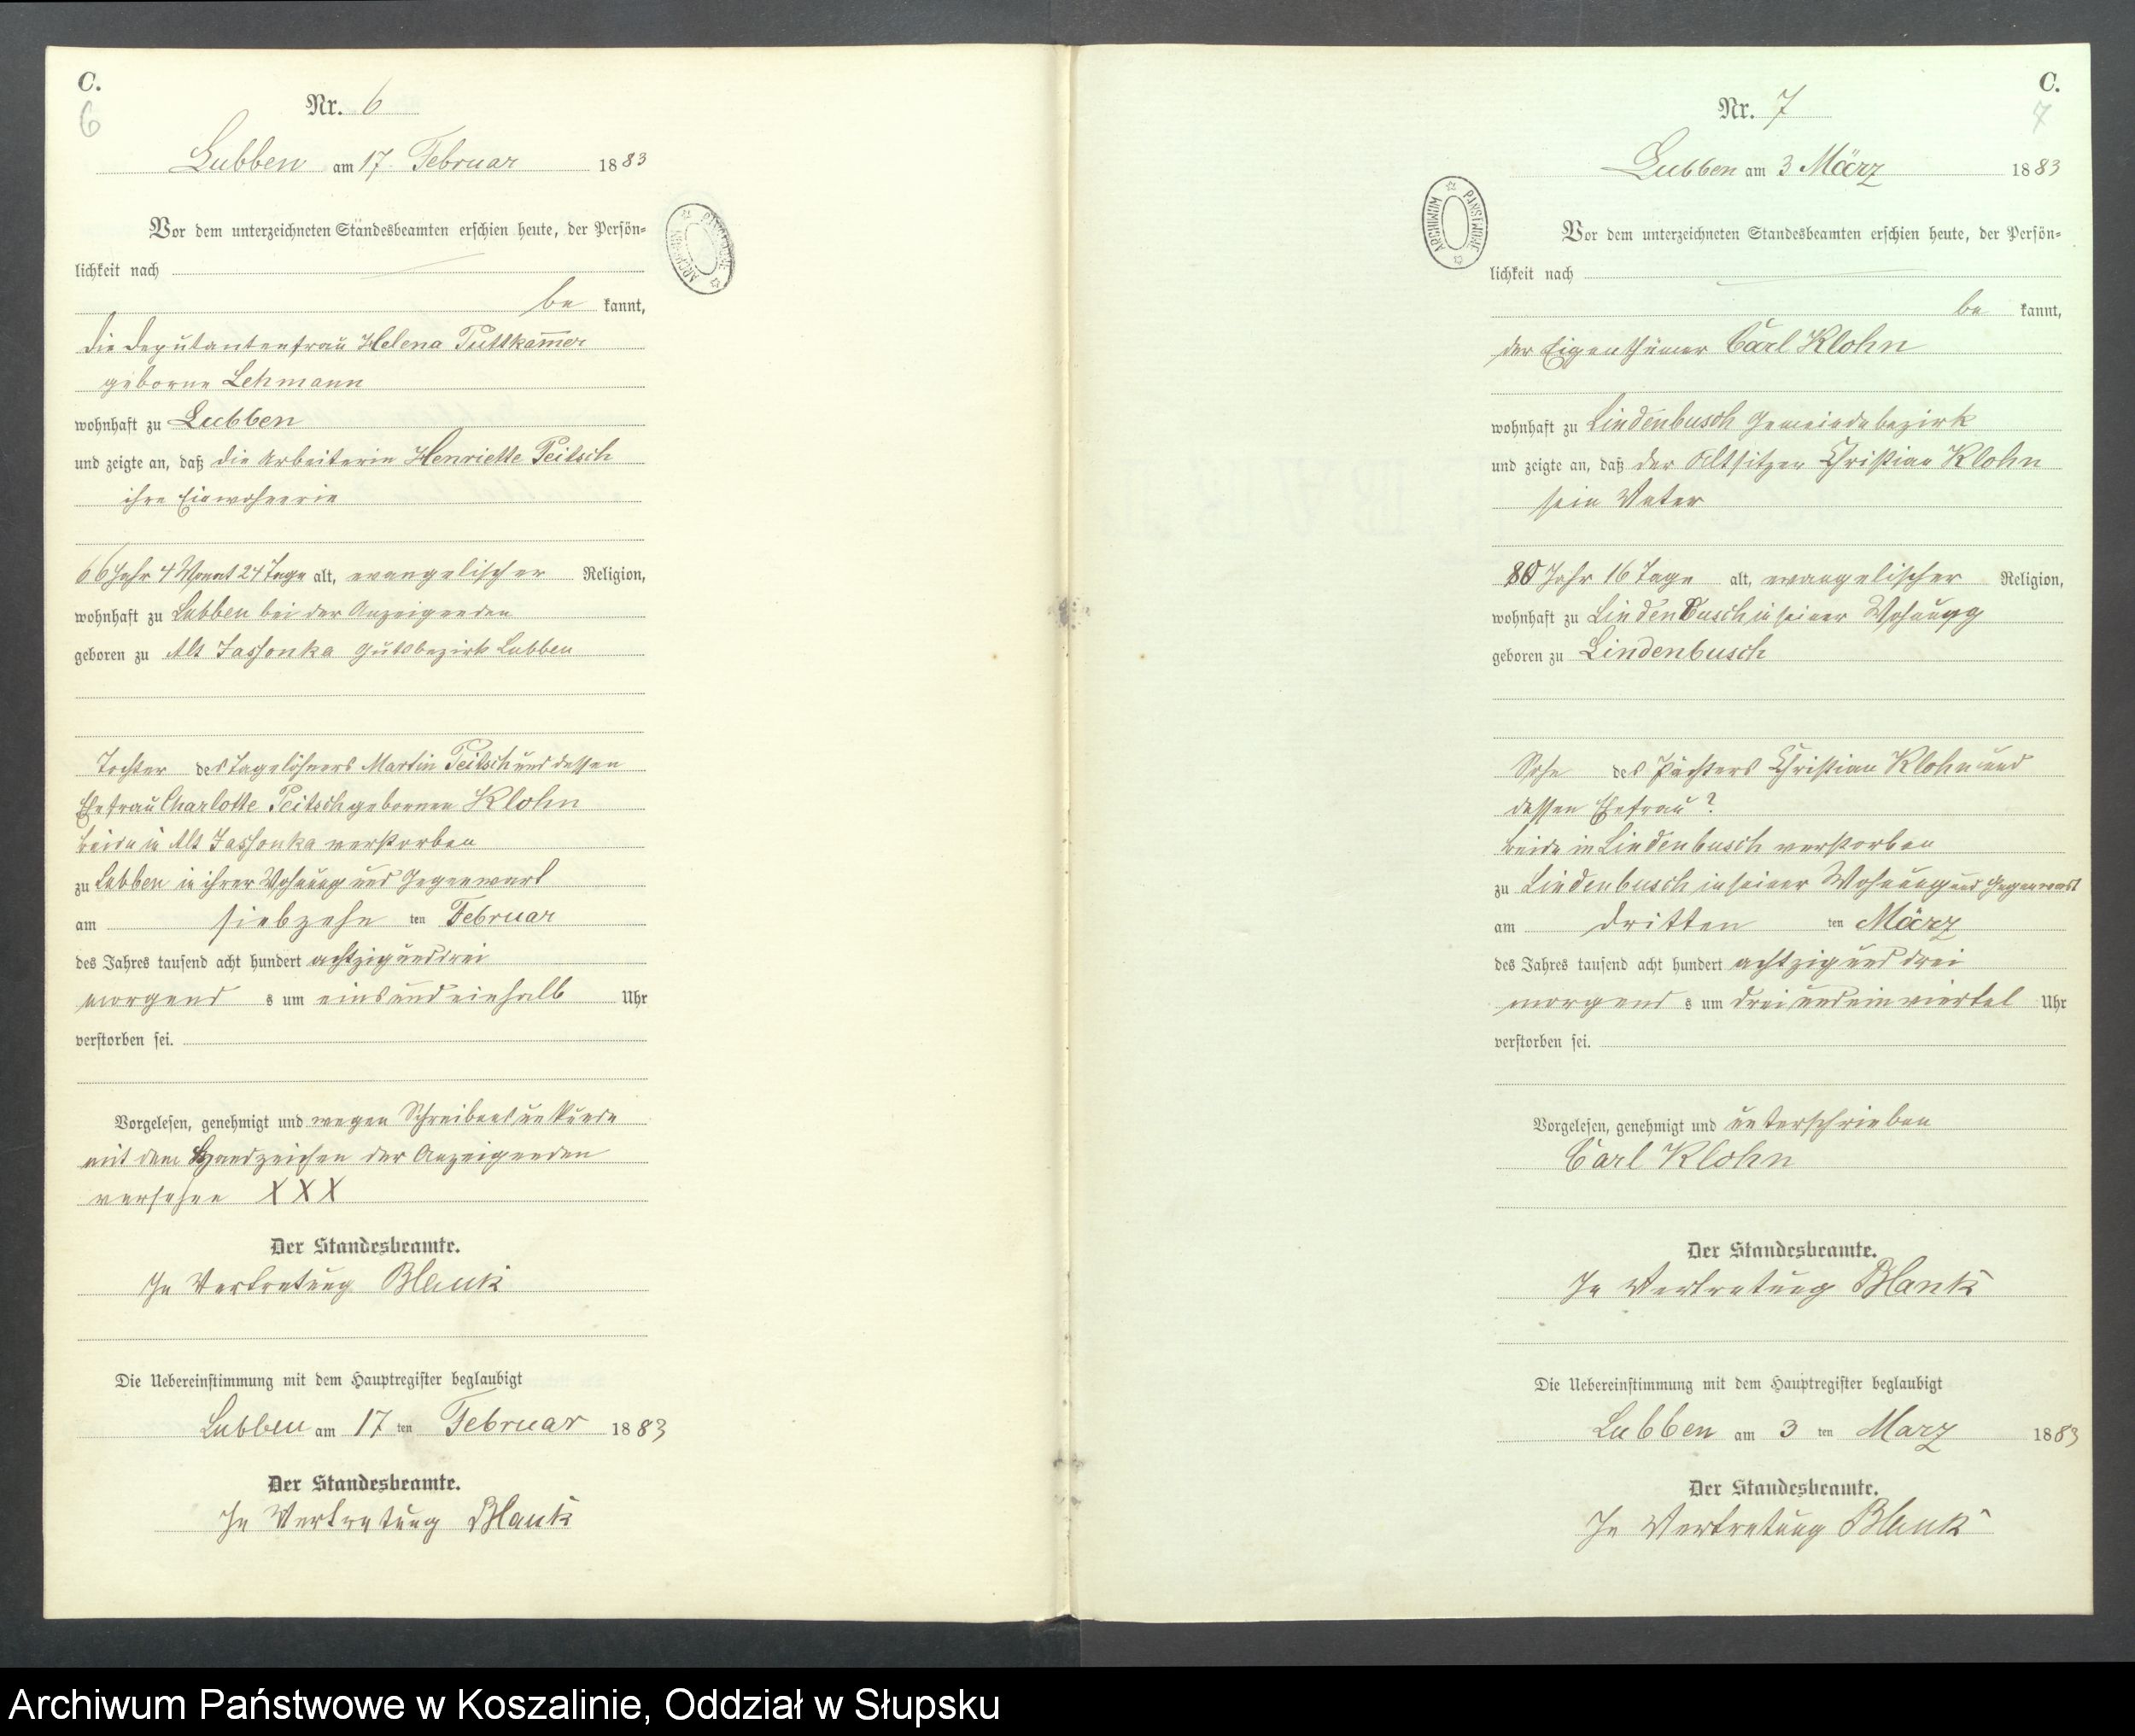 C.
6
Nr. 6
Lubben am 17. Februar 1883
Vor dem unterzeichneten Standesbeamten erschien heute, der Persön-
lichkeit nach
be kannt,
die Deputantenfrau Helena Puttkam̅er
geborne Lehmann
wohnhaft zu Lubben
und zeigte an, daß die Arbeiterin Henriette Peitsch
ihre Einwohnerin
66 Jahr 4 Monat 24 Tage alt, evangelischer Religion,
wohnhaft zu Lubben bei der Anzeigenden
geboren zu Alt Jassonka Gutsbezirk Lubben
Tochter des Tagelöhners Martin Peitsch und dessen
Ehefrau Charlotte Peitsch gebornen Klohn
beide in Alt Jassonka verstorben
zu Lubben in ihrer Wohnung und Gegenwart
am siebzehn ten Februar
des Jahres tausend acht hundert achtzig und drei
morgend s um eins und einhalb Uhr
verstorben sei.
Vorgelesen, genehmigt und wegen Schreibensunkunde
mit dem Handzeichen der Anzeigenden
versehen XXX
Der Standesbeamte.
In Vertretung Blank
Die Uebereinstimmung mit dem Hauptregister beglaubigt
Lubben am 17 ten Februar 1883
Der Standesbeamte.
In Vertretung Blank
ARCHIWUM PAŃSTWOWE
C.
7
Nr. 7
Lubben am 3 März 1883
Vor dem unterzeichneten Standesbeamten erschien heute, der Persön-
lichkeit nach
be kannt,
der Eigenthümer Carl Klohn
wohnhaft zu Lindenbusch Gemeindebezirk
und zeigte an, daß der Altsitzer Christian Klohn
sein Vater
80 Jahr 16 Tage alt, evangelischer Religion,
wohnhaft zu Lindenbusch in seiner Wohnung
geboren zu Lindenbusch
Sohn des Pächters Christian Klohn und
dessen Ehefrau?
beide in Lindenbusch verstorben
zu Lindenbusch in seiner Wohnung und Gegenwart
am dritten ten März
des Jahres tausend acht hundert achtzig und drei
morgend s um drei und ein viertel Uhr
verstorben sei.
Vorgelesen, genehmigt und unterschrieben
Carl Klohn
Der Standesbeamte.
In Vertretung Blank
Die Uebereinstimmung mit dem Hauptregister beglaubigt
Lubben am 3 ten Marz 1883
Der Standesbeamte.
In Vertretung Blank
ARCHIWUM PAŃSTWOWE
Archiwum Państwowe w Koszalinie, Oddział w Słupsku